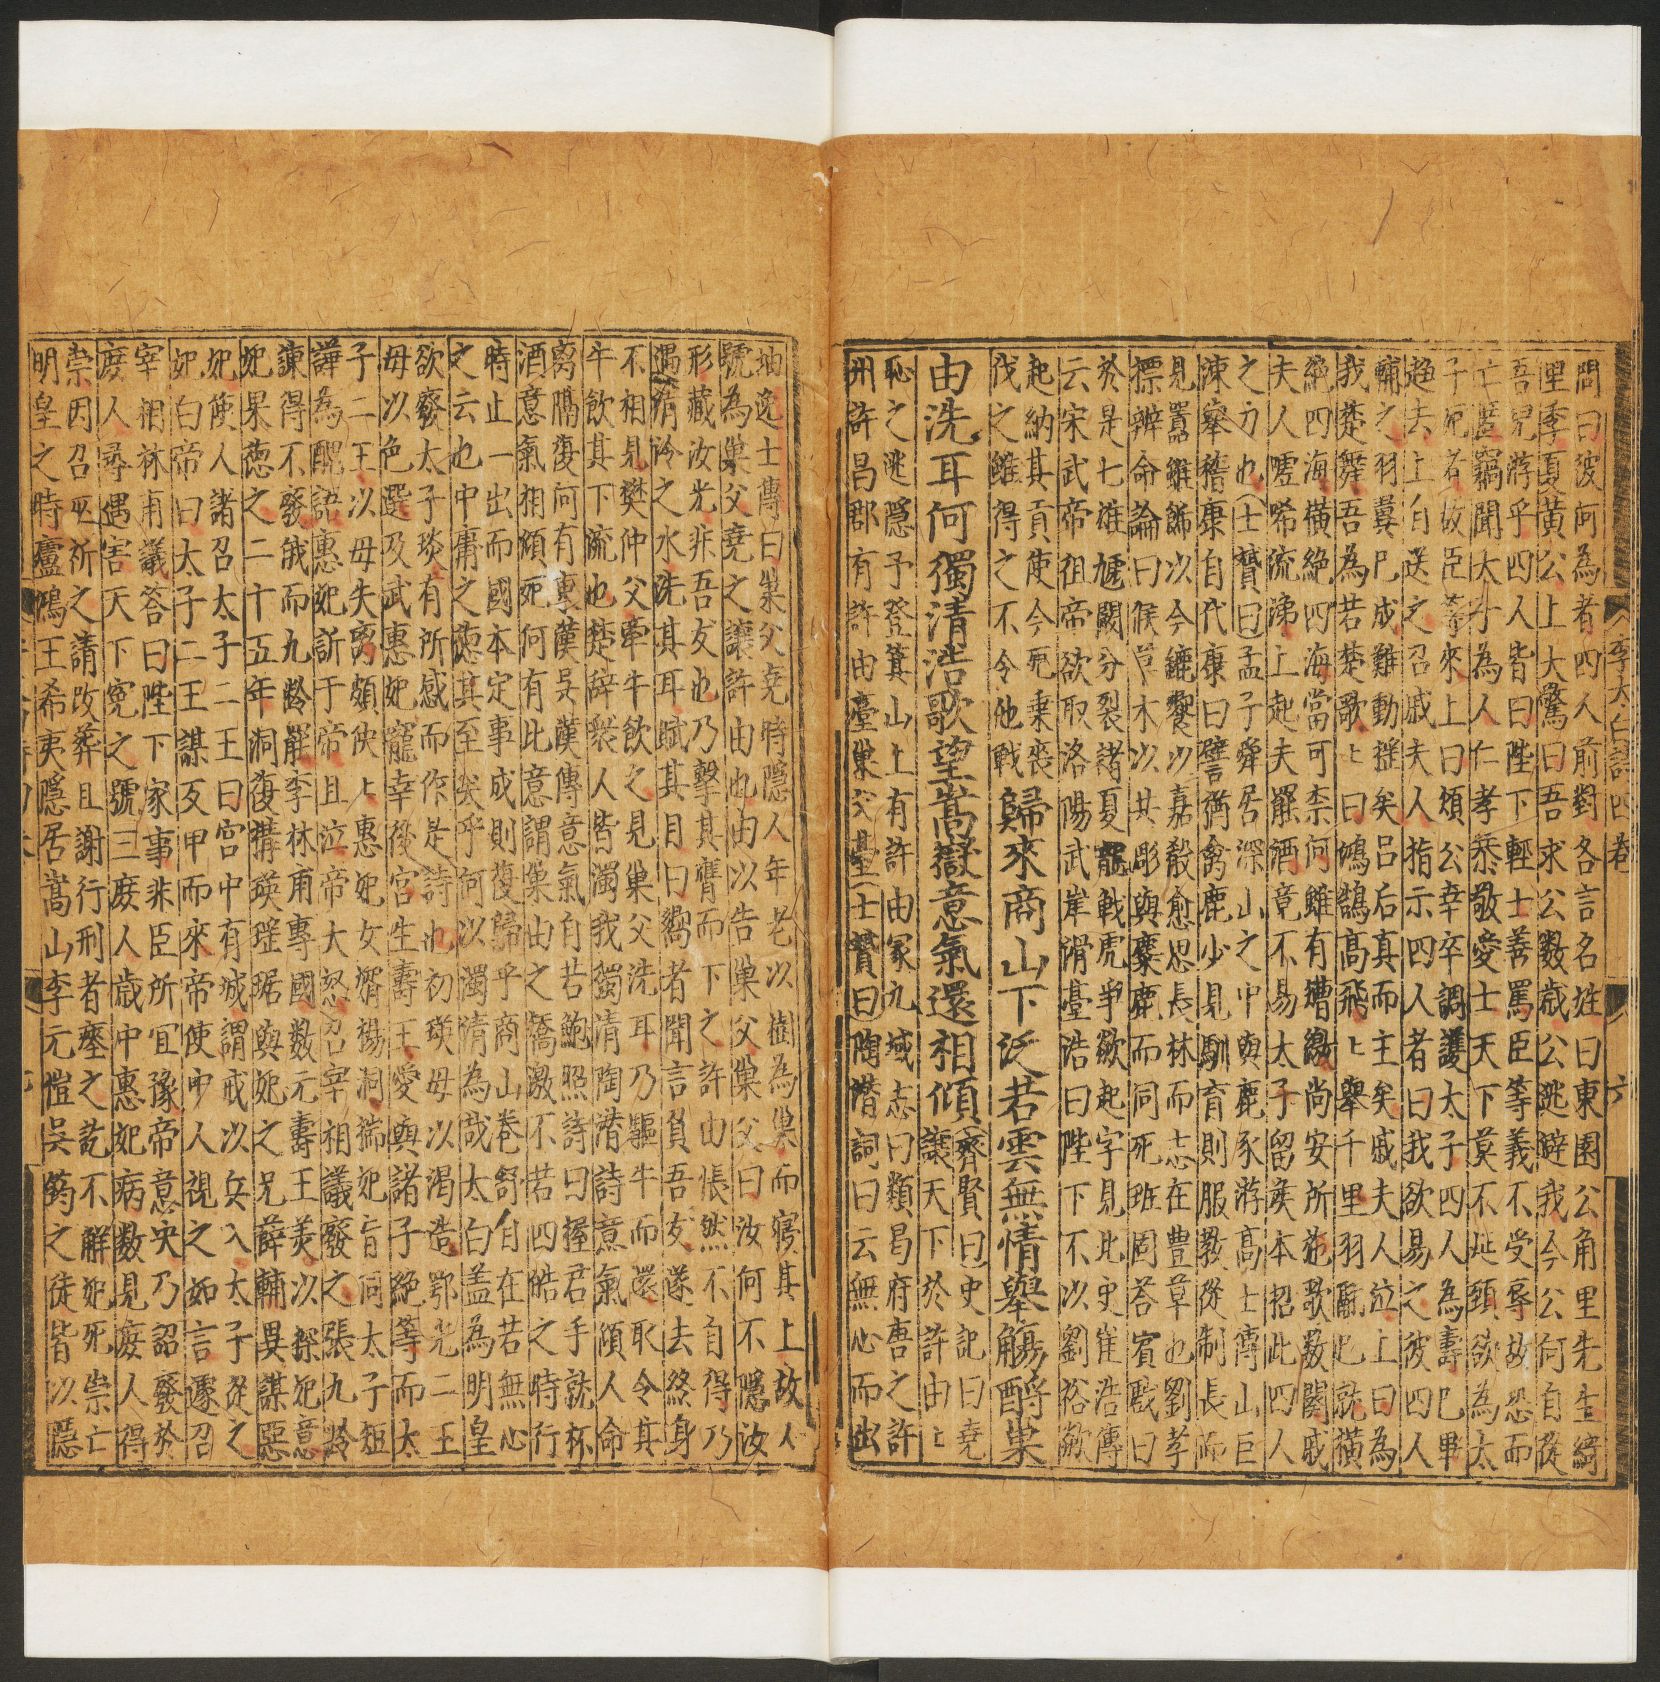 問曰彼何為者四人前對各言名姓曰東園公角里先生綺
里季夏黃公上大驚曰吾求公數歲公逃避我今公何自從
吾兒游乎四人皆曰陛下輕士善罵臣等義不受辱故恐而
亡匿竊聞太子為人仁孝恭敬愛士天下莫不延頸欲為太
子死者故臣等來上曰煩公幸卒調護太子四人為壽巳畢
趨去上目送之召戚夫人指示四人者曰我欲易之彼四人
輔之羽翼巳成難動搖矣呂后真而主矣戚夫人泣上曰為
我楚舞吾為若楚歌歌曰鴻鵠高飛一舉千里羽翮巳就橫
絕四海橫絕四海當可柰何雖有矰繳尚安所施歌數闋戚
夫人噓唏流涕上起去罷酒竟不易太子留侯本招此四人
之力也士贇曰孟子舜居深山之中與鹿豕游高士傳山巨
源舉嵇康自代康曰譬猶禽鹿少見馴育則服教從制長而
見羈雖飾以今鑣饗以嘉殽愈思長林而志在豊草也劉孝
標辨命論曰候草木以共彫與麋鹿而同死班固荅賓戲曰
於是七雄虓闞分裂諸夏龍戰虎爭欲起字見北史崔浩傳
云宋武帝祖帝欲取洛陽武岸滑臺浩曰陛下不以劉裕歘
起納其貢使今死乗喪
伐之雖得之不令他戰 歸來商山下泛若雲無情舉觴酹巢
由洗耳何獨清浩歌望嵩嶽意氣還相傾 齊賢曰史記曰堯
讓天下於許由由
恥之逃隱予登箕山上有許由冢九域志曰類昌府唐之許
州許昌郡有許由臺巢父臺士贇曰陶潛詞曰云無心而出
李太白詩四卷 六
岫逸士傳曰巢父堯時隱人年老以樹為巢而寢其上故人
號為巢父堯之讓許由也由以告巢父巢父曰汝何不隱汝
形藏汝光非吾友也乃擊其膺而下之許由悵然不自得乃
遇清泠之水洗其耳賦其目曰嚮者聞言負吾友遂去終身
不相見樊仲父牽牛飲之見巢父洗耳乃驅牛而還耻令其
牛飲其下流也楚辭衆人皆濁我獨清陶潛詩意氣傾人命
离隔復何有裏蘐是漢傳意氣自若鮑照詩曰握君手就杯
酒意氣相傾死何有此意謂巢由之矯激不若四皓之時行
時止一出而國本定事成則復歸乎商山卷舒自在若無心
之云也中庸之德其至矣乎何以濁清為哉太白盖為明皇
欲發太子琰有所感而作是詩也初瑛母以渴造鄂光二王
毋以色選及武惠妃寵幸後宮生壽王愛與諸子絕等而太
子二王以毋失离頗怏怏惠妃女婿楊洞揣妃旨同太子短
譁為醜語惠妃訴于帝且泣帝大怒召宰相議發之張九齡
諫得不發俄而九齡罷李林甫專國數元壽王美以探妃意
妃果德之二十五年洞復構瑛瑶琚與妃之兄薛輔異謀惡
妃使人諸召太子二王曰宮中有城謂戒以兵入太子從之
妃白帝曰太子二王謀反甲而來帝使中人視之如言遽召
宰相林甫議荅曰陛下家事非臣所宜豫帝意决乃詔發於
庶人尋遇害天下寃之號三庶人歲中惠妃病數見庶人得
崇因召巫祈之請改葬且謝行刑者瘞之訖不解妃死崇亡
明皇之時盧鴻王希夷隱居嵩山李元愷吳筠之徒皆以隱